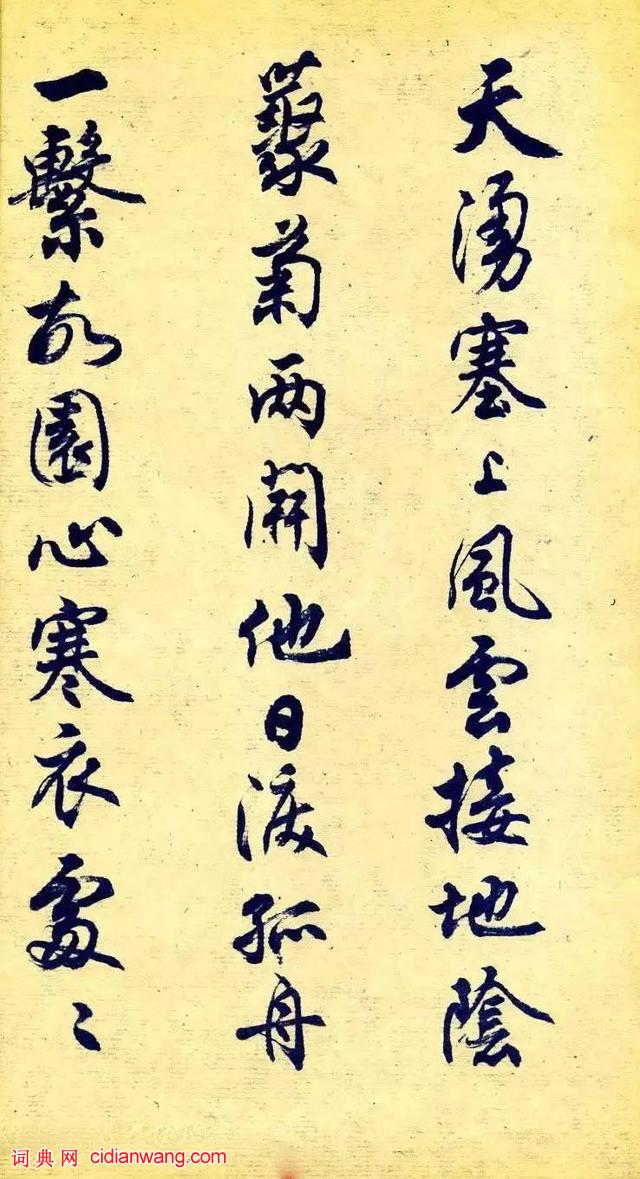 天湧塞上風雲接地陰
藂菊两開他日淚孤舟
一繫故園心寒衣處〻
词典网 cidianwang.com